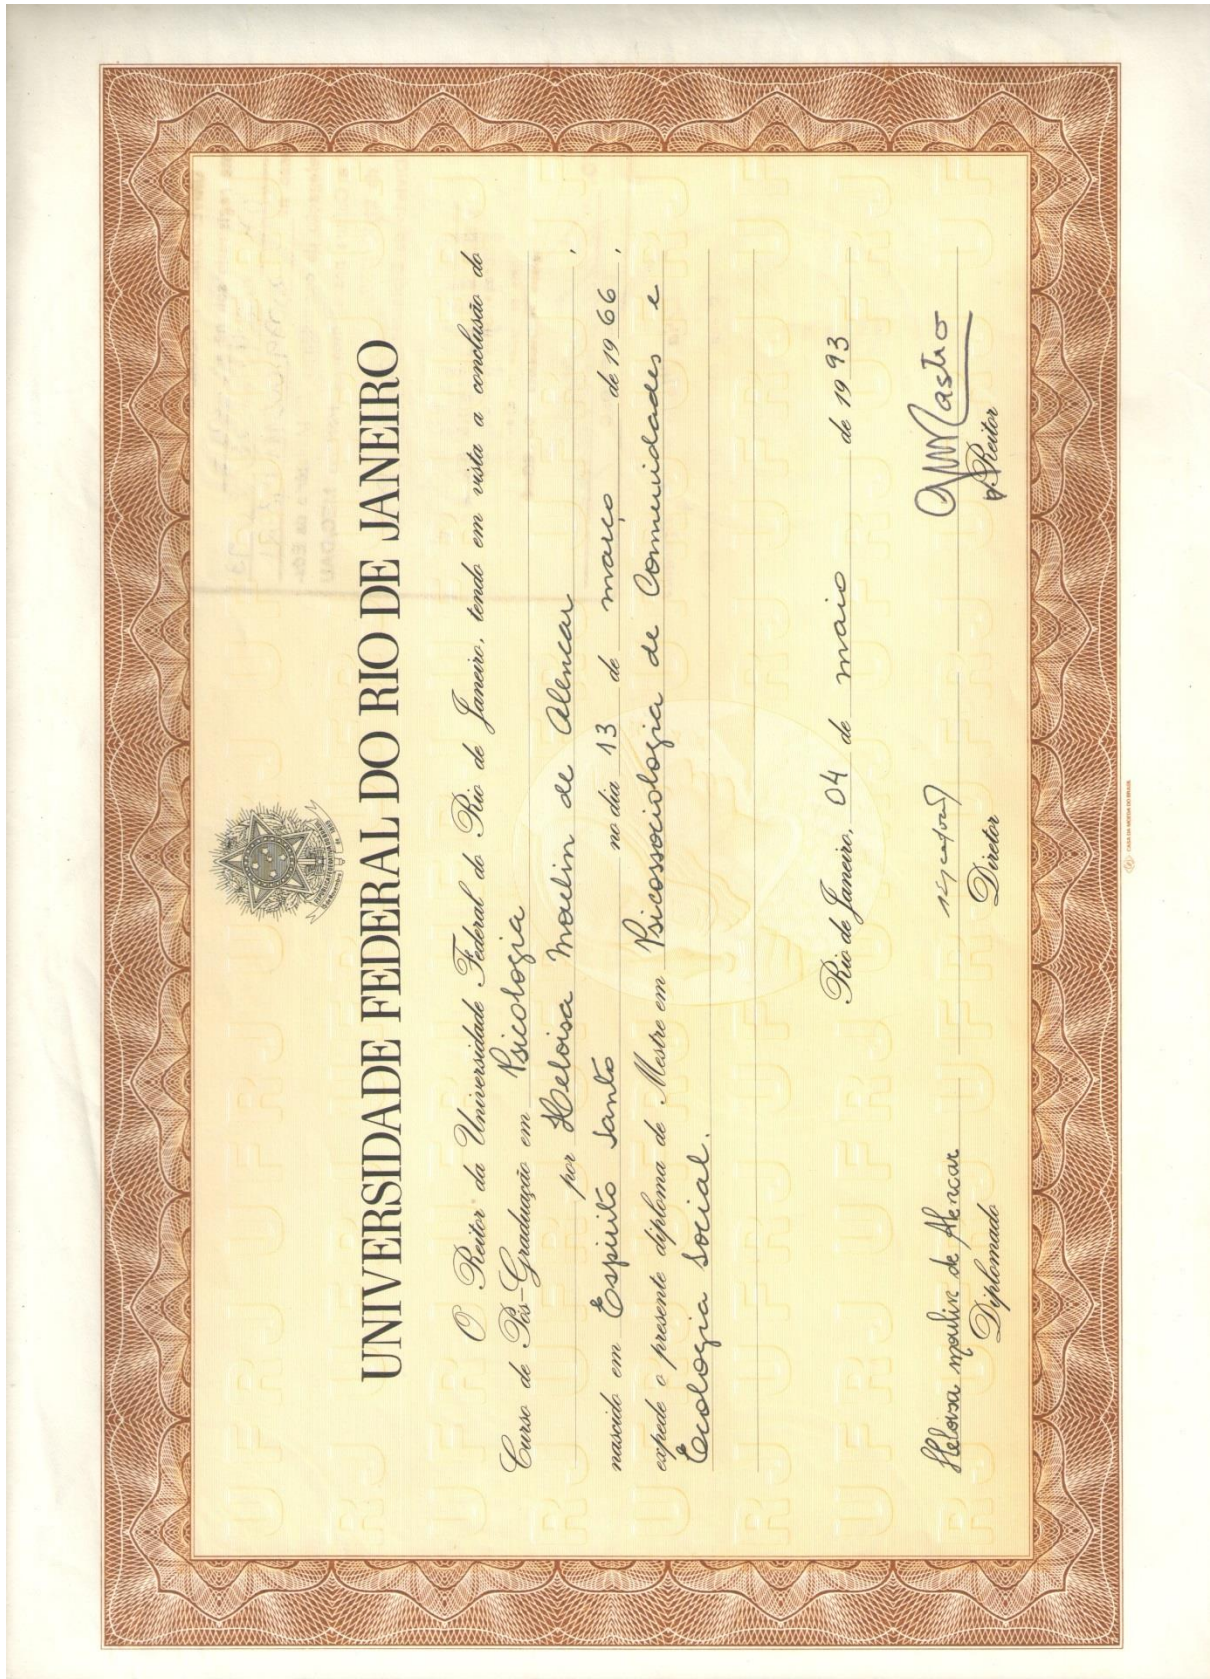 UNIVERSIDADE FEDERAL DO RIO DE JANEIRO
O Reitor da Universidade Federal do Rio de Janeiro, tendo em vista a conclusão do
Curso de Pós-Graduação em Psicologia
por Heloisa Moulin de Alencar,
nascido em Espirito Santo no dia 13 de março de 1966,
expede o presente diploma de Mestre em Psicossociologia de Comunidades e
Ecologia Social.
Rio de Janeiro, 04 de maio de 1993
Heloisa Moulin de Alencar
Diplomado
Diretor
p/ Reitor
CASA DA MOEDA DO BRASIL